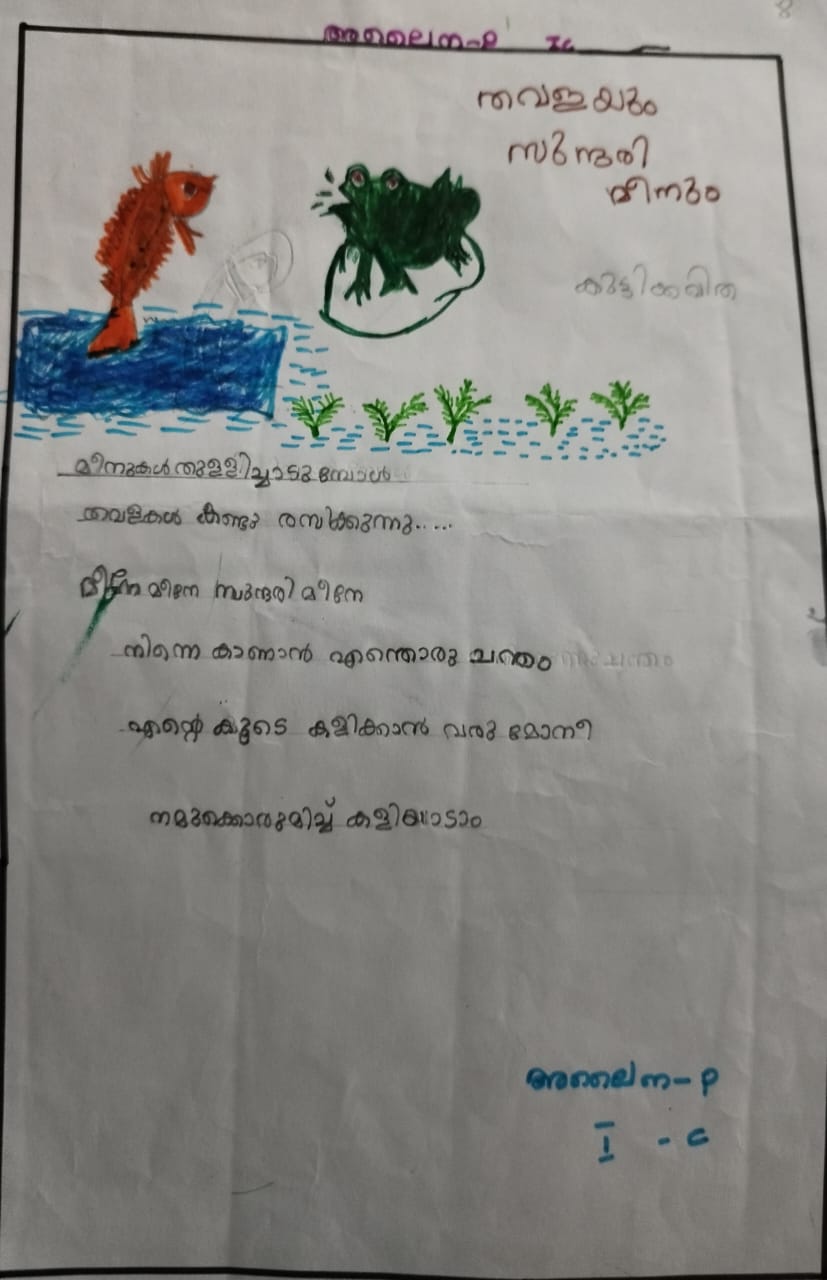 അലൈന-P IC
തവളയും
സുന്ദരി
മീനും
കുട്ടിക്കവിത
മീനുകൾ തുള്ളിച്ചാടുമ്പോൾ
തവളകൾ കണ്ടു രസിക്കുന്നു.....
മീനേ മീനേ സുന്ദരി മീനേ
നിന്നെ കാണാൻ എന്തൊരു ചന്തം
എന്റെ കൂടെ കളിക്കാൻ വരു മോനീ
നമുക്കൊരുമിച്ച് കളിയാടാം
അലൈന-P
I - C